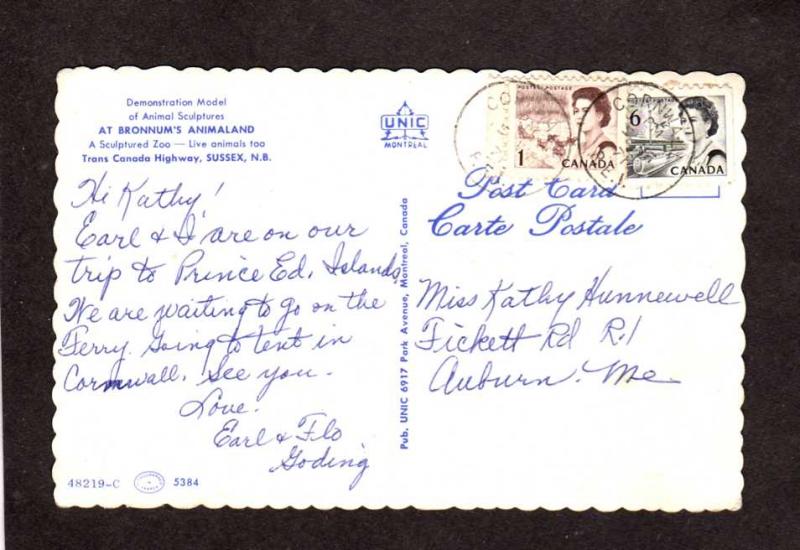 Demonstration Model
of Animal Sculptures
AT BRONNUM'S ANIMALAND
A Sculptured Zoo — Live animals too
Trans Canada Highway, SUSSEX, N.B.
UNIC
MONTREAL
POSTES POSTAGE
1
CANADA
6
CANADA
Post Card
Carte Postale
Hi Kathy!
Earl & I are on our
trip to Prince Ed. Islands
We are waiting to go on the
Ferry. Going to tent in
Cornwall. See you.
Love.
Earl & Flo
Goding
Pub. UNIC 6917 Park Avenue, Montreal, Canada
Miss Kathy Hunnewell
Fickett Rd R.1
Auburn. Me
48219-C
5384